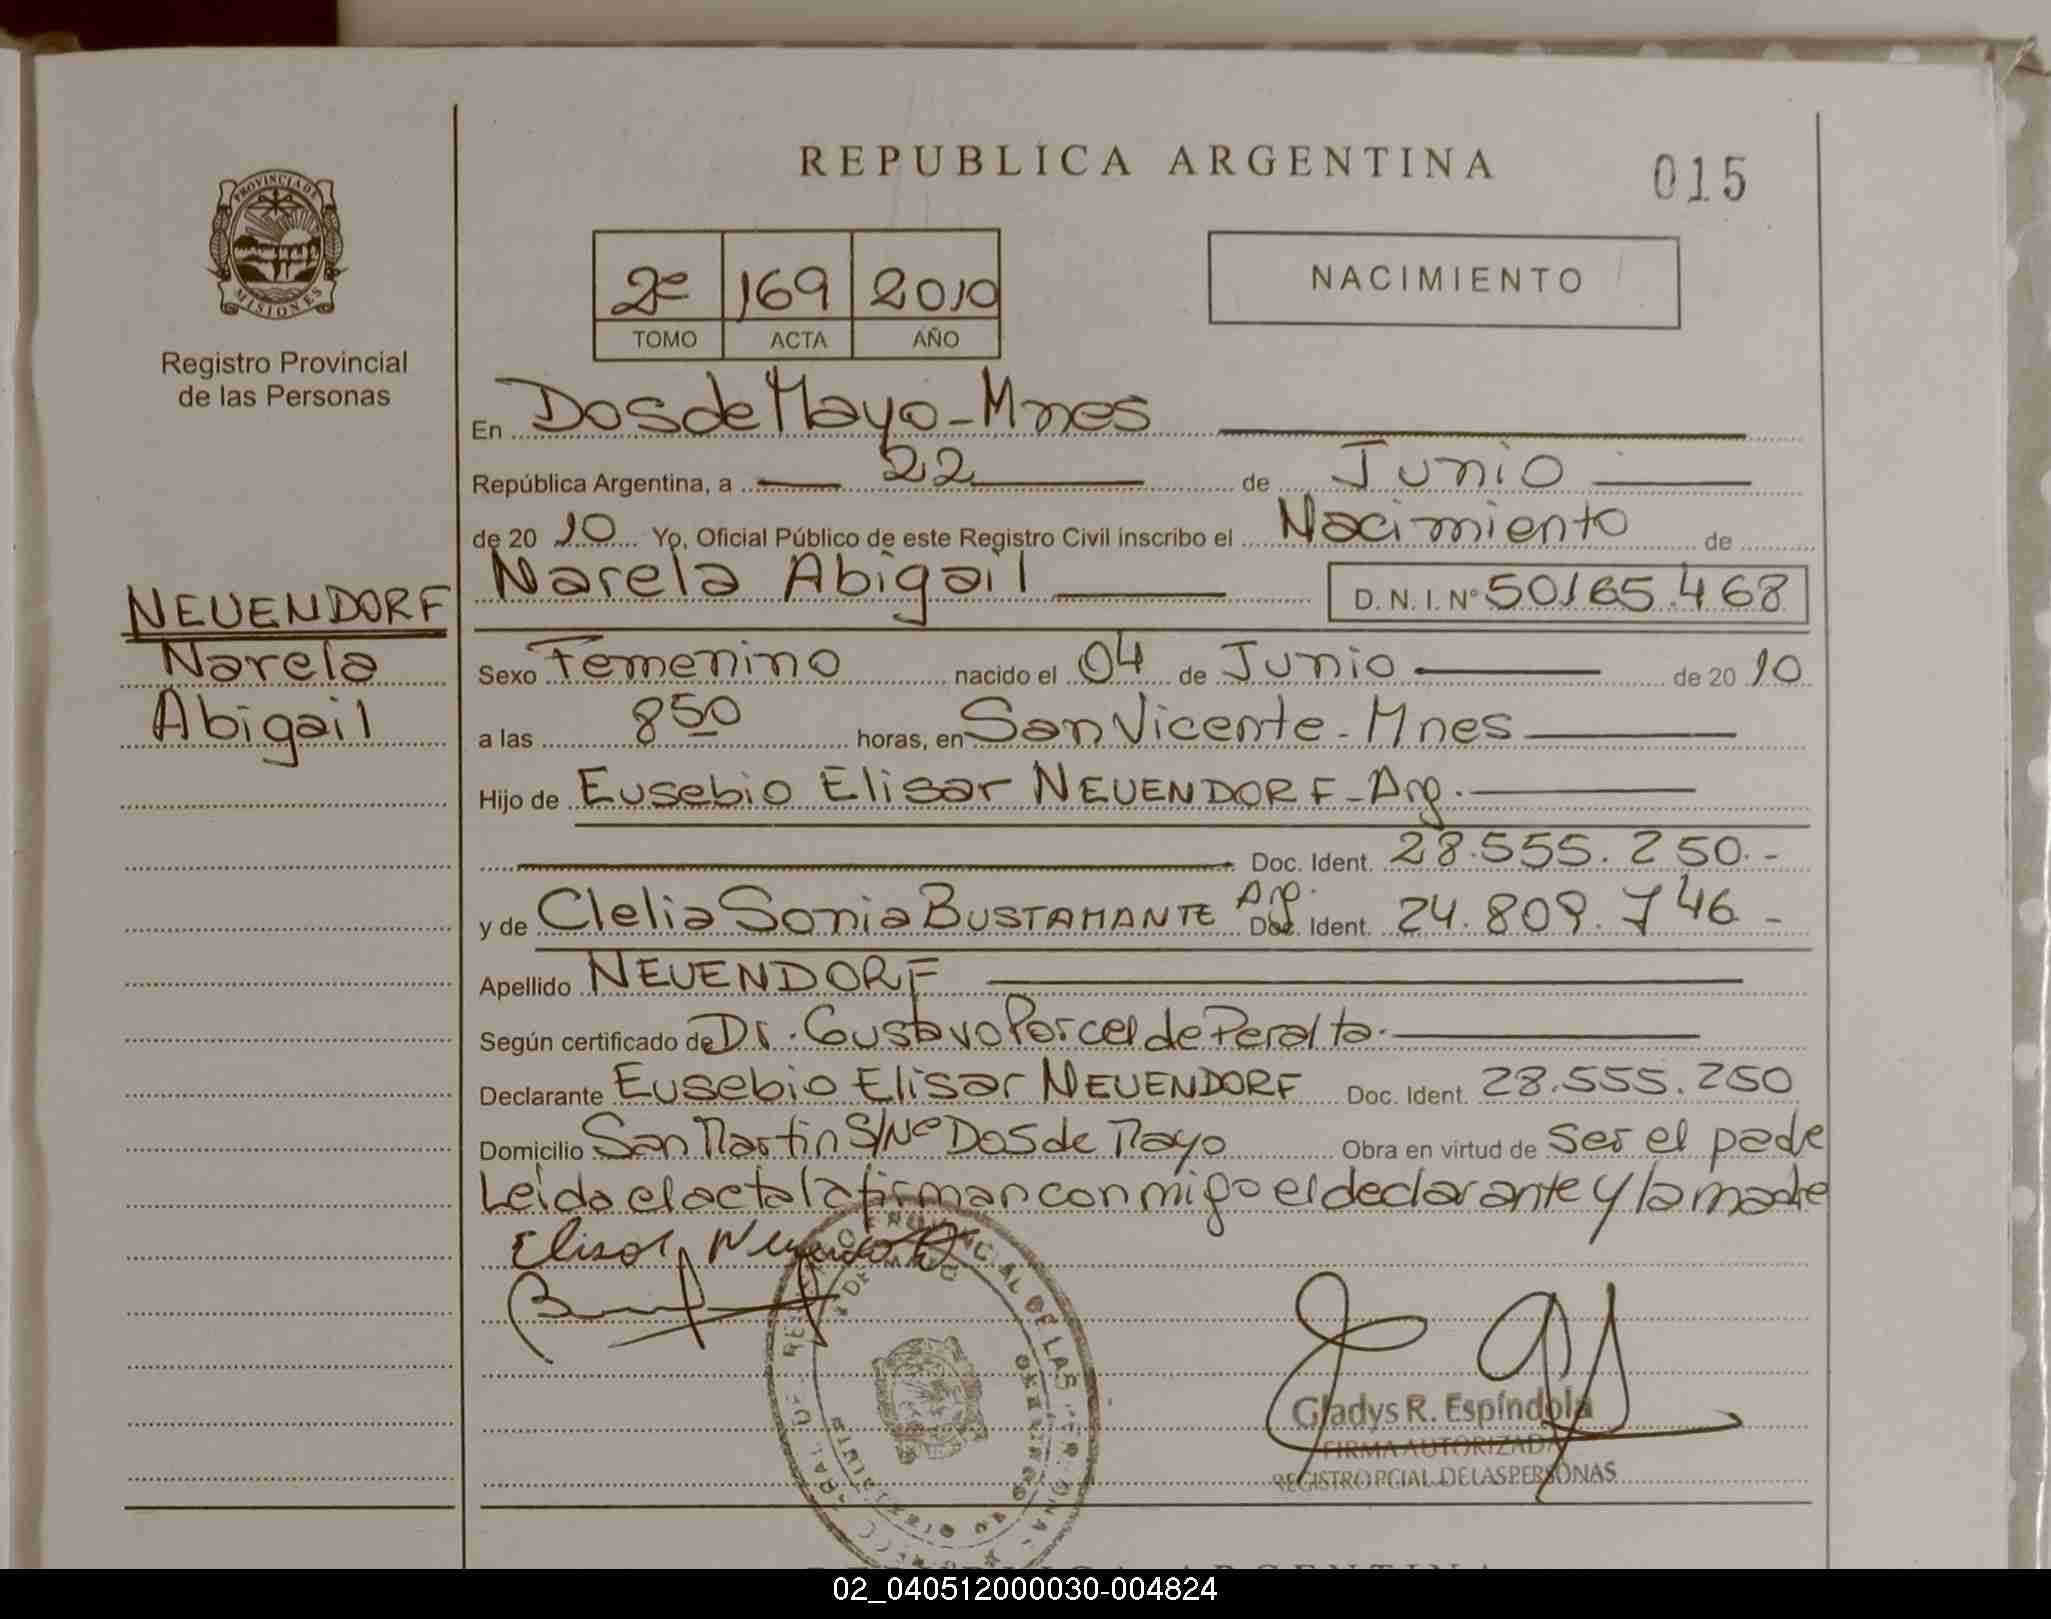 REPUBLICA ARGENTINA
015
PROVINCIA DE
MISIONES
Registro Provincial
de las Personas
2º 169 2010
TOMO ACTA AÑO
NACIMIENTO
En Dos de Mayo - Mnes
República Argentina, a 22 de Junio
de 20 10 Yo, Oficial Público de este Registro Civil inscribo el Nacimiento de
Narela Abigail D. N. I. Nº 50165.468
NEUENDORF
Narela
Abigail
Sexo Femenino nacido el 04 de Junio de 20 10
a las 8 50 horas, en San Vicente - Mnes
Hijo de Eusebio Elisar NEUENDORF - Arg.
Doc. Ident. 28.555.250.-
y de Clelia Sonia BUSTAMANTE Arg. Doc. Ident. 24.809.746 -
Apellido NEUENDORF
Según certificado de Dr. Gustavo Porcel de Peralta.
Declarante Eusebio Elisar NEUENDORF Doc. Ident. 28.555.250
Domicilio San Martin S/Nº Dos de Mayo Obra en virtud de ser el padre
Leida el acta la firman conmigo el declarante y la madre
Elisar Neuendorf
Gladys R. Espíndola
FIRMA AUTORIZADA
REGISTRO PCIAL. DE LAS PERSONAS
REPUBLICA ARGENTINA
02_040512000030-004824